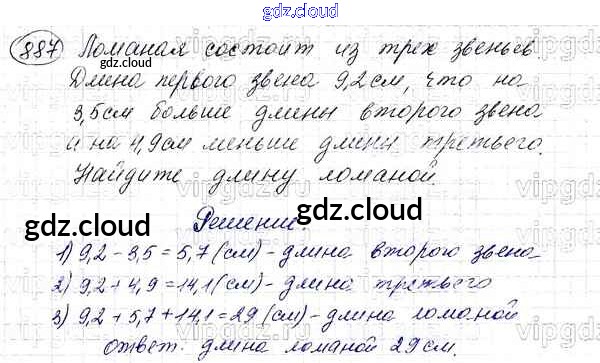 gdz.cloud
887 Ломаная состоит из трех звеньев
gdz.cloud
Длина первого звена 9,2 см, что на
3,5см больше длины второго звена
и на 4,9см меньше длины третьего.
Найдите длину ломаной.
gdz.cloud gdz.cloud
Решение:
1) 9,2 - 3,5 = 5,7 (см) - длина второго звена
2) 9,2 + 4,9 = 14,1 (см) - длина третьего
3) 9,2 + 5,7 + 14,1 = 29 (см) - длина ломаной
Ответ: длина ломаной 29 см.
gdz.cloud